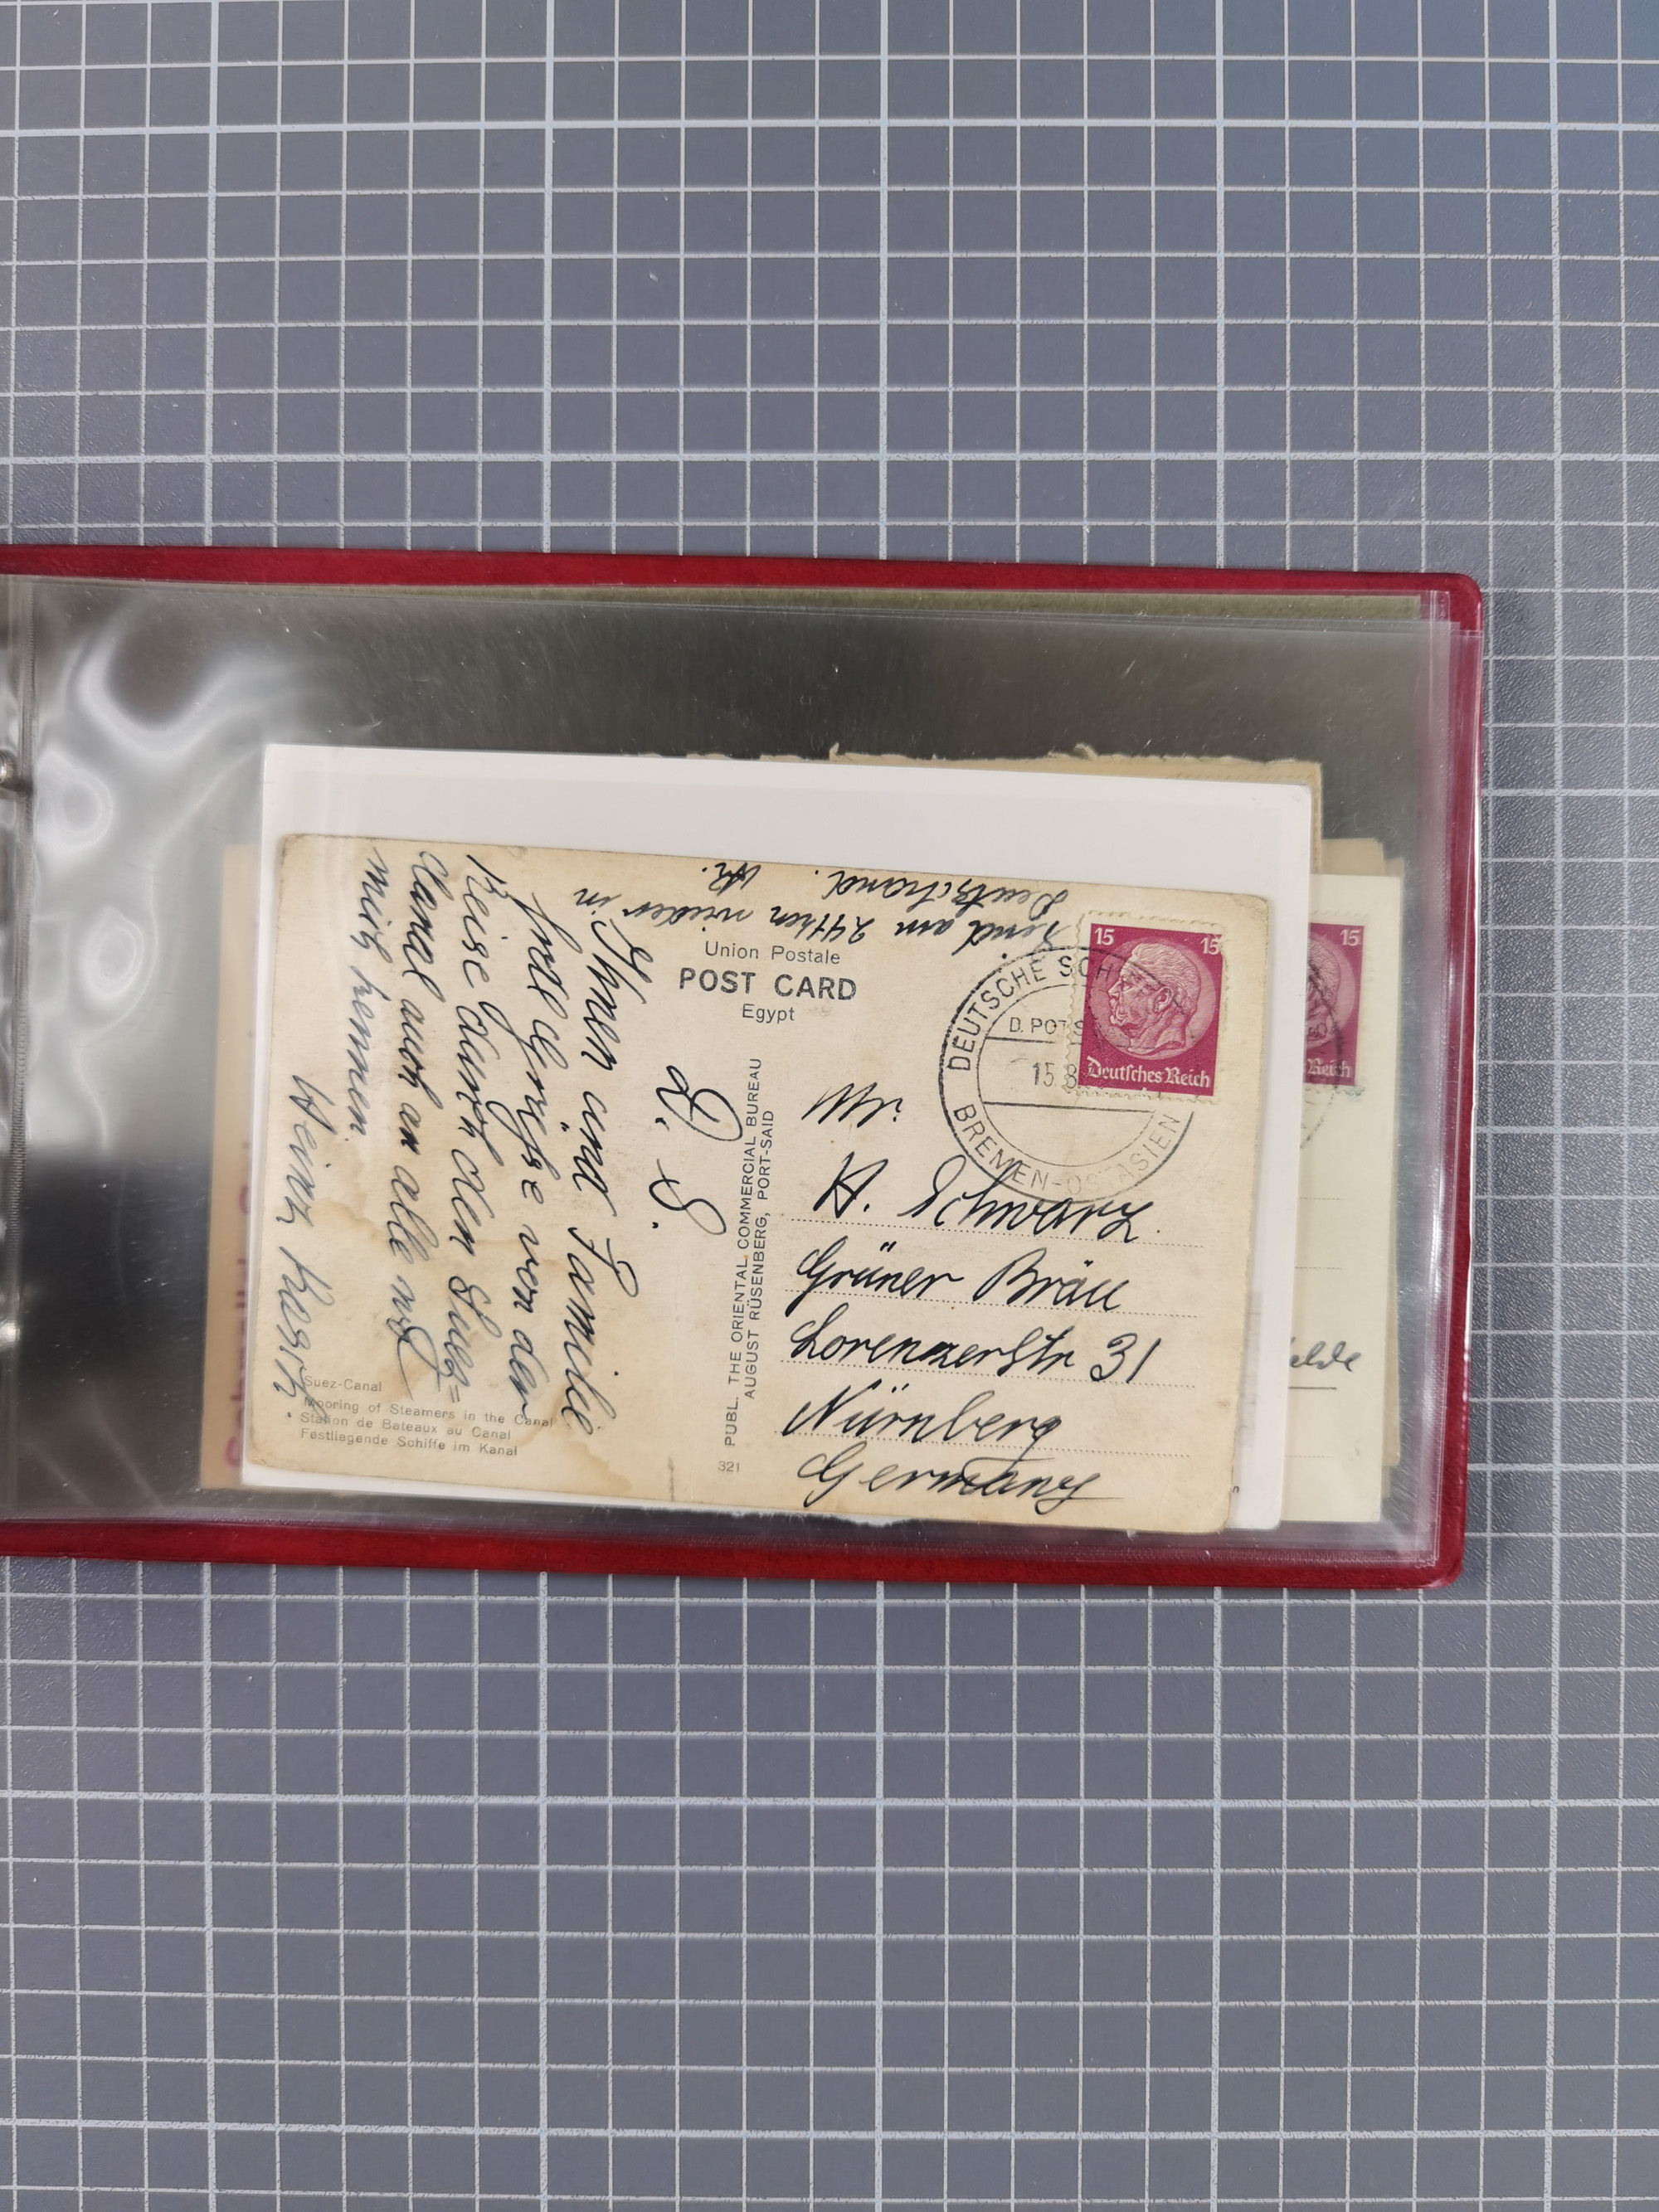 Union Postale
POST CARD
Egypt
L. S.
Ihnen und Familie
frdl. Grüsse von der
Reise durch den Suez=
Canal auch an alle wo
mich kennen.
Heinr.
send am 24ten wieder in
Deutschand. H.
PUBL. THE ORIENTAL COMMERCIAL BUREAU
AUGUST RÜSENBERG, PORT-SAID
321
Suez-Canal
Mooring of Steamers in the Canal
Station de Bateaux au Canal
Festliegende Schiffe im Kanal
15 15
Deutsches Reich
DEUTSCHE SCH
D. POTS
15.8
BREMEN-OSTASIEN
Mr.
H. Schwarz.
Grüner Bräu
Lorenzerstr 31
Nürnberg
Germany
15
Reich
elde